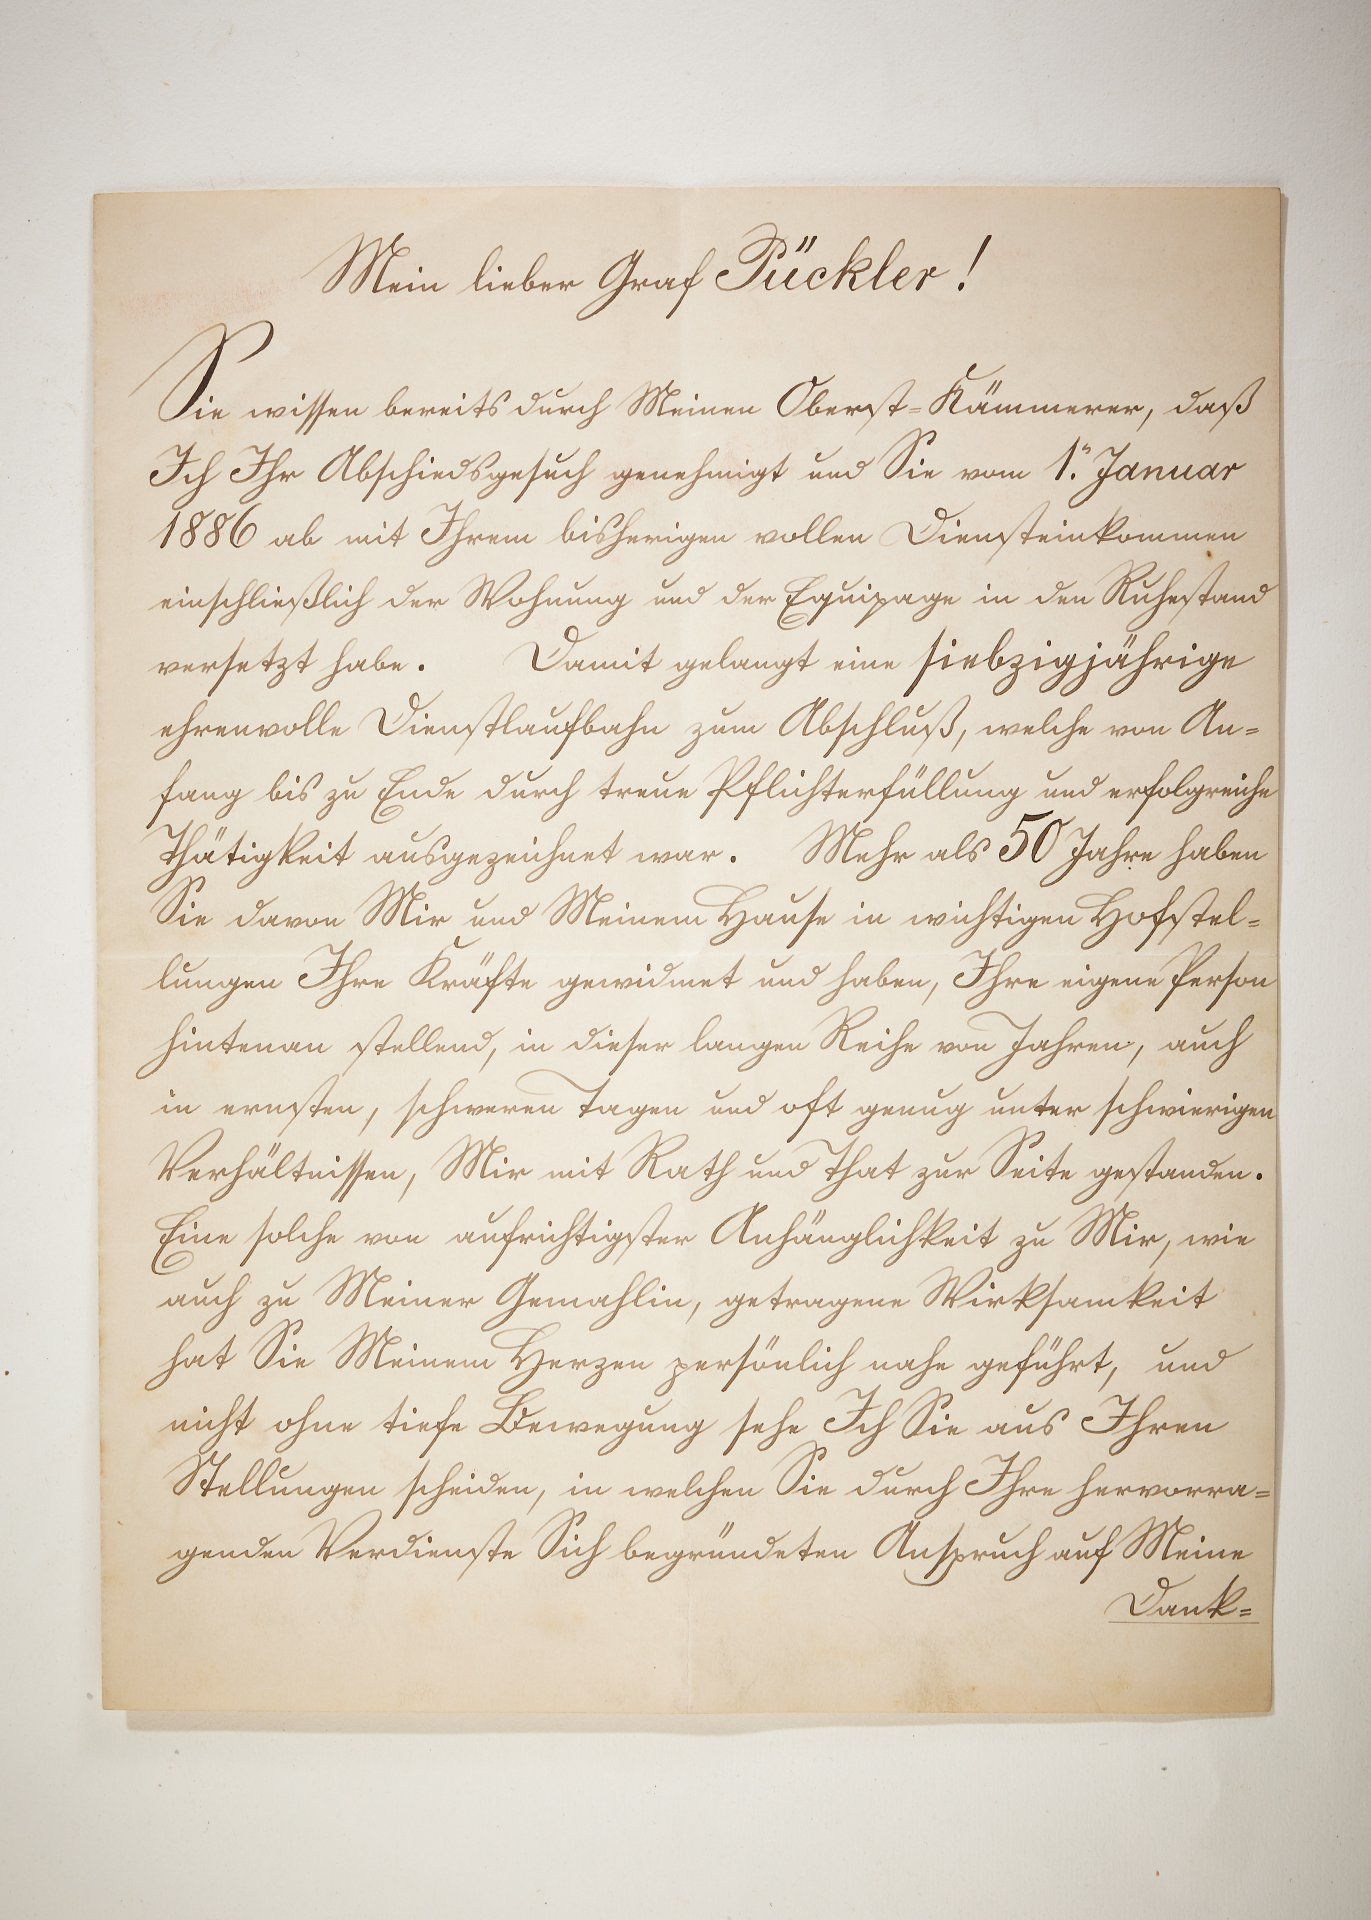 Mein lieber Graf Pückler!
Sie wissen bereits durch Meinen Oberst=Kämmerer, daß
Ich Ihr Abschiedsgesuch genehmigt und Sie vom 1. Januar
1886 ab mit Ihrem bisherigen vollen Diensteinkommen
einschließlich der Wohnung und der Equipage in den Ruhestand
versetzt habe. Damit gelangt eine siebzigjährige
ehrenvolle Dienstlaufbahn zum Abschluß, welche von An=
fang bis zu Ende durch treue Pflichterfüllung und erfolgreiche
Thätigkeit ausgezeichnet war. Mehr als 50 Jahre haben
Sie davon Mir und Meinem Hause in wichtigen Hofstel=
lungen Ihre Kräfte gewidmet und haben, Ihre eigene Person
hintenan stellend, in dieser langen Reihe von Jahren, auch
in ernsten, schweren Tagen und oft genug unter schwierigen
Verhältnissen, Mir mit Rath und That zur Seite gestanden.
Eine solche von aufrichtigster Anhänglichkeit zu Mir, wie
auch zu Meiner Gemahlin, getragene Wirksamkeit
hat Sie Meinem Herzen persönlich nahe geführt, und
nicht ohne tiefe Bewegung sehe Ich Sie aus Ihren
Stellungen scheiden, in welchen Sie durch Ihre hervorra=
genden Verdienste Sich begründeten Anspruch auf Meine
Dank=